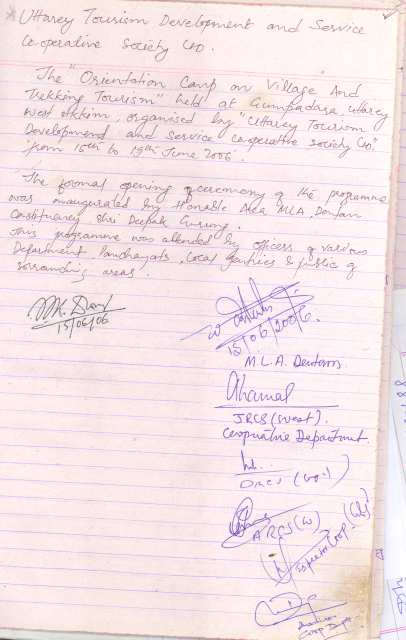 Uttarey Tourism Development and Service
Co-operative Society LTD.
The "Orientation Camp on Village And
Trekking Tourism" held at Gumpadara, Uttarey
West Sikkim, organised by "Uttarey Tourism
Development and Service Cooperative Society LTD."
from 15th to 19th June 2006.
The formal opening ceremony of the programme
was inaugurated by Honable Area MLA, Dentam
Constituency Shri Deepak Gurung.
This programme was attended by officers of various
Department, Panchayats, Local gentries & public of
sorrounding areas.
15/06/06
15/06/2006.
M.L.A. Dentam
JRCS (West).
Cooperative Department.
DRCS
ARCS (W)
Inspector Coop.
Coop. Deptt.